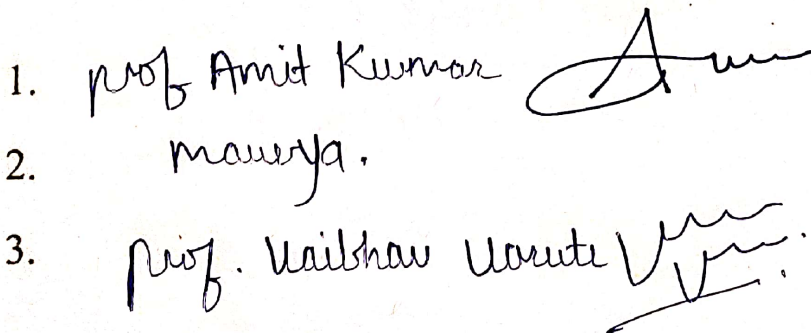 1. prof Amit Kumar
2. maurya.
3. prof. Vaibhav Varute